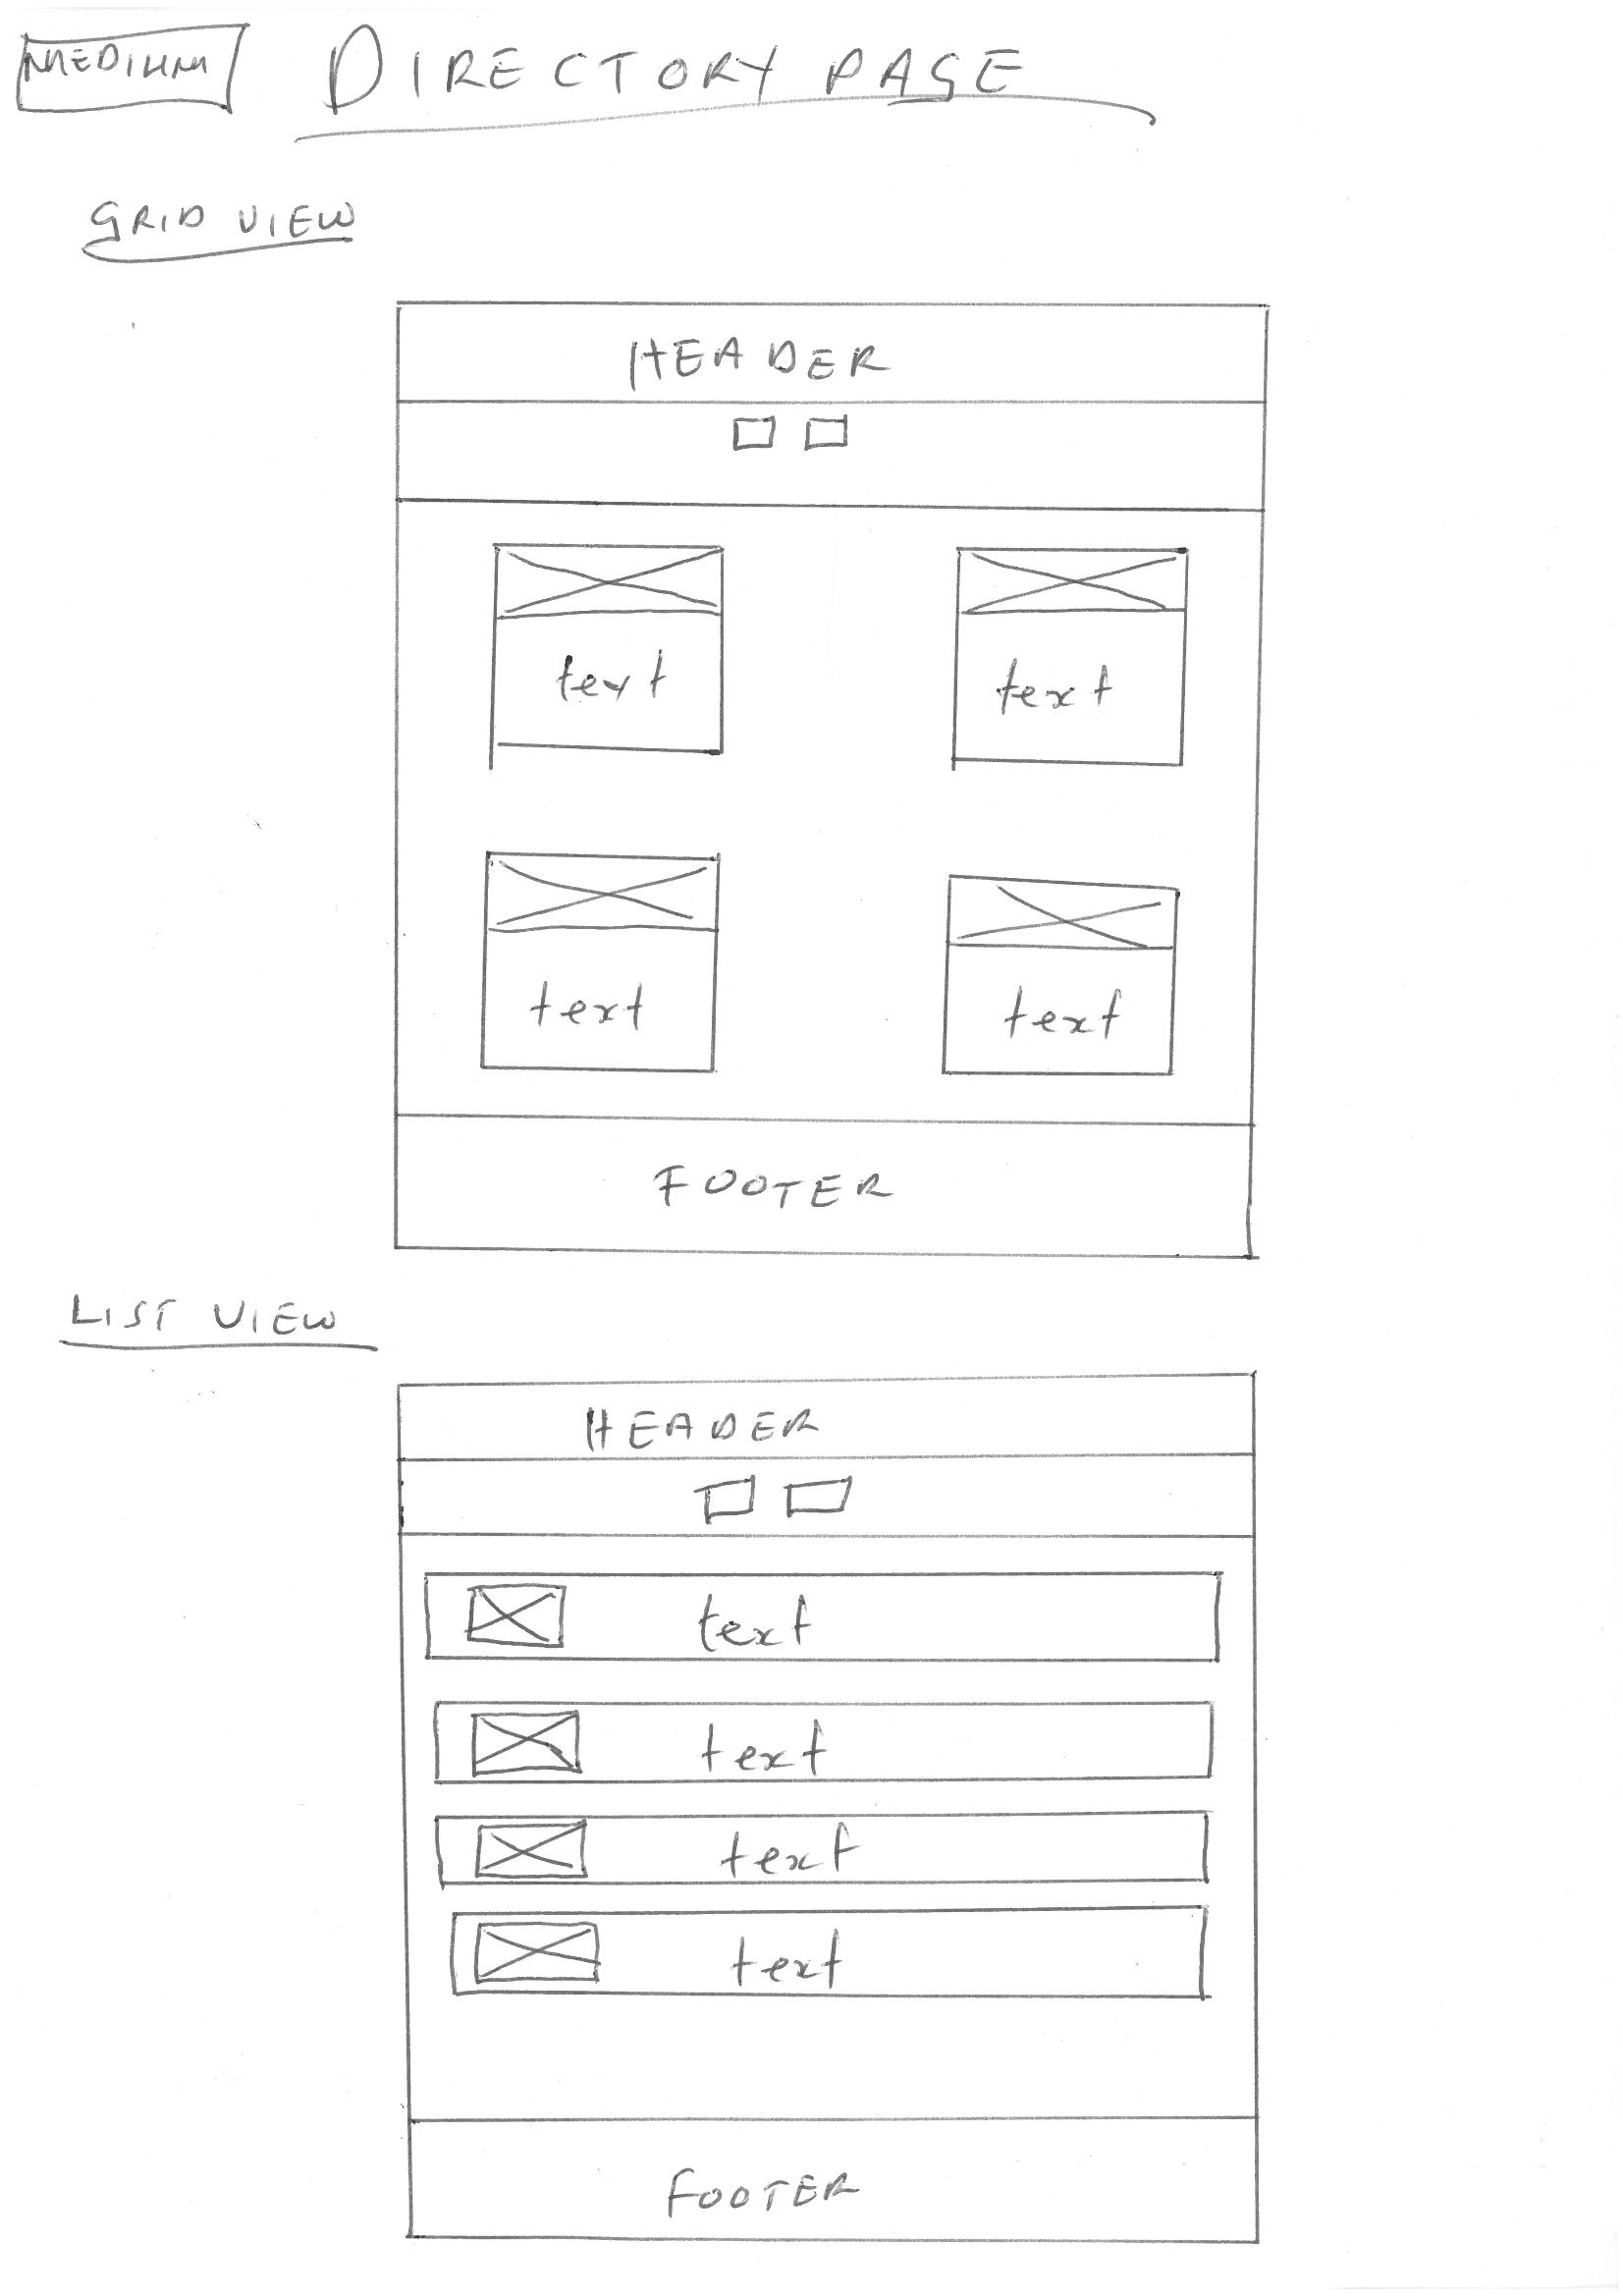 MEDIUM
DIRECTORY PAGE
GRID VIEW
HEADER
text text
text text
FOOTER
LIST VIEW
HEADER
text
text
text
text
FOOTER